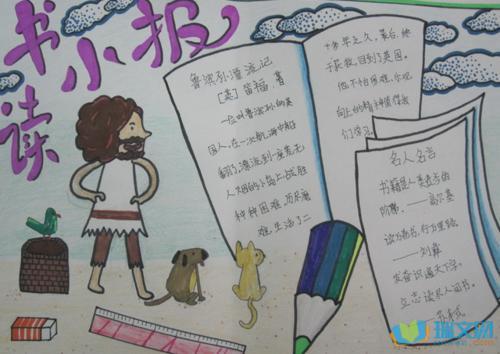 读书小报
鲁滨孙漂流记
[英] 笛福 著
一位叫鲁滨孙的英
国人，在一次航海中船
翻了，漂流到一座荒无
人烟的小岛上，战胜
种种困难，历尽磨
难，生活了二
十多年之久，最后，终
于获救，回到了英国。
他不怕困难，乐观
向上的精神值得我
们学习。
名人名言
书籍是人类进步的
阶梯。——高尔基
读万卷书，行万里路
——刘彝
发奋识遍天下字，
立志读尽人间书。
苏轼
瑞文网